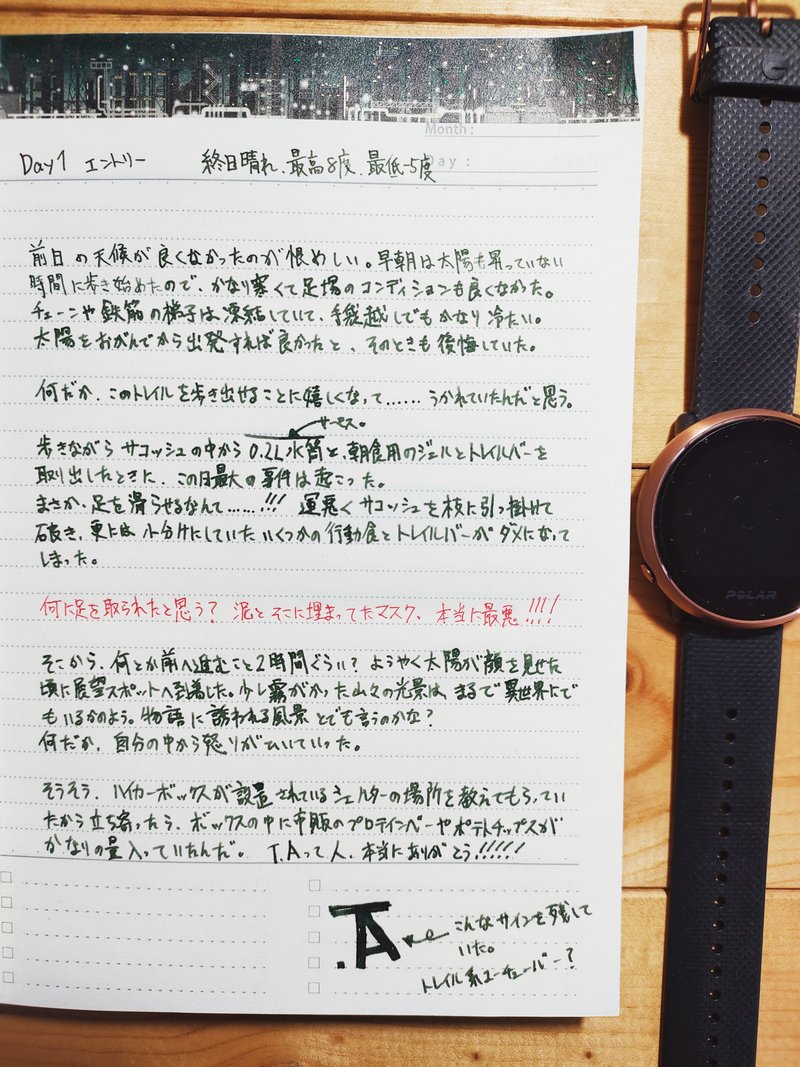 Month :
Day :
Day1 エントリー 終日晴れ、最高8度、最低-5度
前日の天候が良くなかったのが恨めしい。早朝は太陽も昇っていない
時間に歩き始めたので、かなり寒くて足場のコンディションも良くなかった。
チェーンや鉄筋の梯子は凍結していて、手袋越しでもかなり冷たい。
太陽をおがんでから出発すれば良かったと、そのときも後悔していた。
何だか、このトレイルを歩き出せることに嬉しくなって……うかれていたんだと思う。
サーモス。
歩きながらサコッシュの中から0.2L水筒と、朝食用のジェルとトレイルバーを
取り出したときに、この日最大の事件は起こった。
まさか、足を滑らせるなんて……!!! 運悪くサコッシュを枝に引っ掛けて
破き、更には小分けにしていたいくつかの行動食とトレイルバーがダメになって
しまった。
何に足を取られたと思う? 泥とそこに埋まってたマスク。本当に最悪!!!!
そこから、何とか前へ進むこと2時間ぐらい? ようやく太陽が顔を見せた
頃に展望スポットへ到着した。少し霧がかった山々の光景は、まるで異世界にで
もいるかのよう。物語に誘われる風景とでも言うのかな?
何だか、自分の中から怒りがひいていった。
そうそう、ハイカーボックスが設置されているシェルターの場所を教えてもらってい
たから立ち寄ったら、ボックスの中に市販のプロテインバーやポテトチップスが
かなりの量入っていたんだ。 T.Aって人、本当にありがとう!!!!!
.TA
こんなサインを残して
いた。
トレイル系ユーチューバー?
POLAR